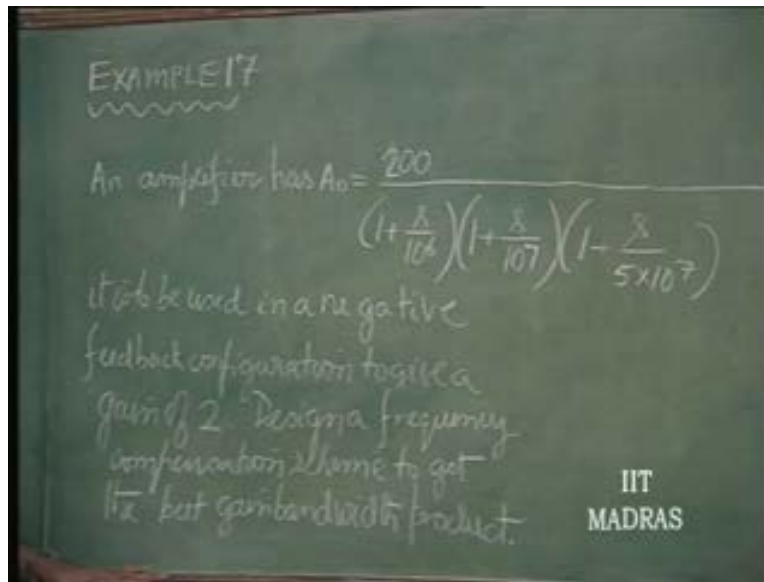 EXAMPLE 17
An amplifier has A₀ = 200
(1+ s/10⁶)(1+ s/10⁷)(1- s/5×10⁷)
it is to be used in a negative
feedback configuration to give a
gain of 2. Design a frequency
compensation scheme to get
the best gain bandwidth product.
IIT
MADRAS